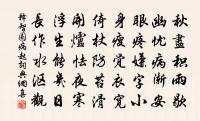 秋盡積雨歇
幽忧病漸安
眼疼嫌字小
身瘦覺衣寬
倚杖防苔滑
開爐怯夜寒
浮生能幾日
長作水漚觀
釋智圓病起詞興網書